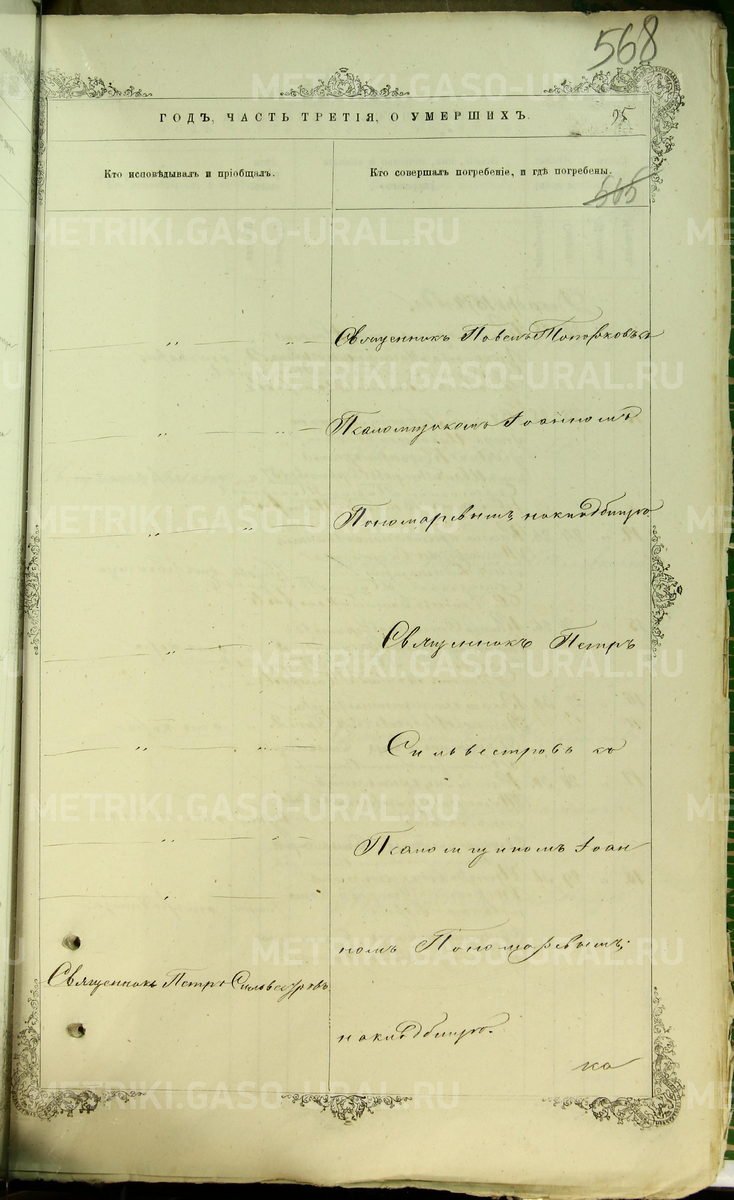 568
ГОДЪ, ЧАСТЬ ТРЕТІЯ, О УМЕРШИХЪ.
95
Кто исповѣдывалъ и пріобщалъ.
Кто совершалъ погребеніе, и гдѣ погребены.
565
Священникъ Павелъ Топорковъ съ
Псаломщикомъ Іоанномъ
Пономаревымъ на кладбищѣ
Священникъ Петръ
Сильвестровъ съ
Псаломщикомъ Іоан
номъ Пономаревымъ
Священникъ Петръ Сильвестровъ
на кладбищѣ.
METRIKI.GASO-URAL.RU